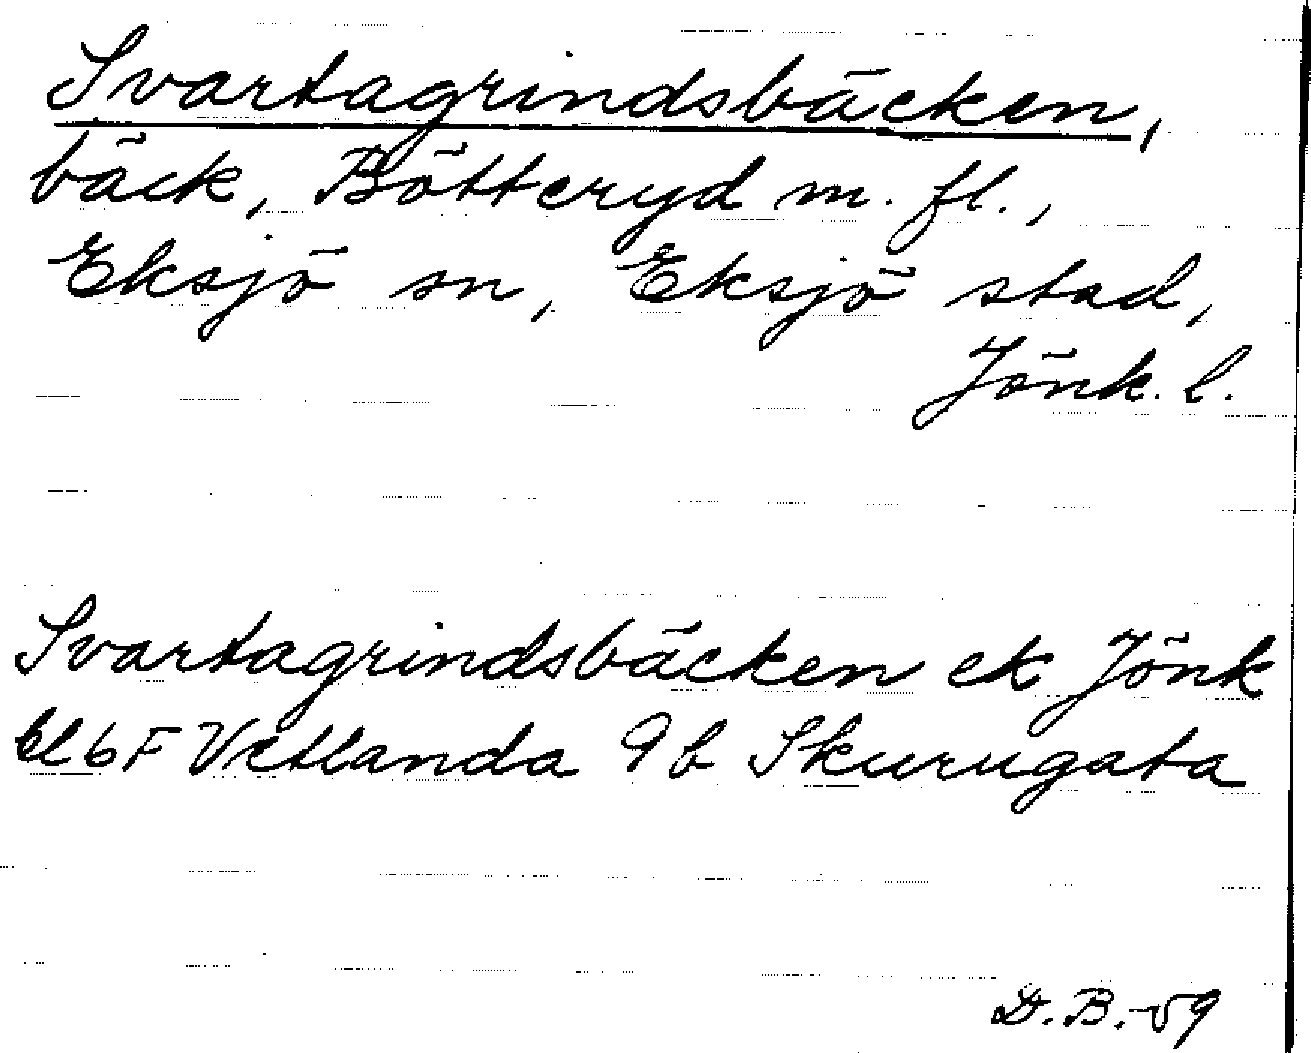 Svartagrindsbäcken,
bäck, Bötteryd m. fl.,
Eksjö sn, Eksjö stad,
Jönk. l.
Svartagrindsbäcken ek Jönk
bl 6F Vetlanda 9b Skurugata
D.B.-59